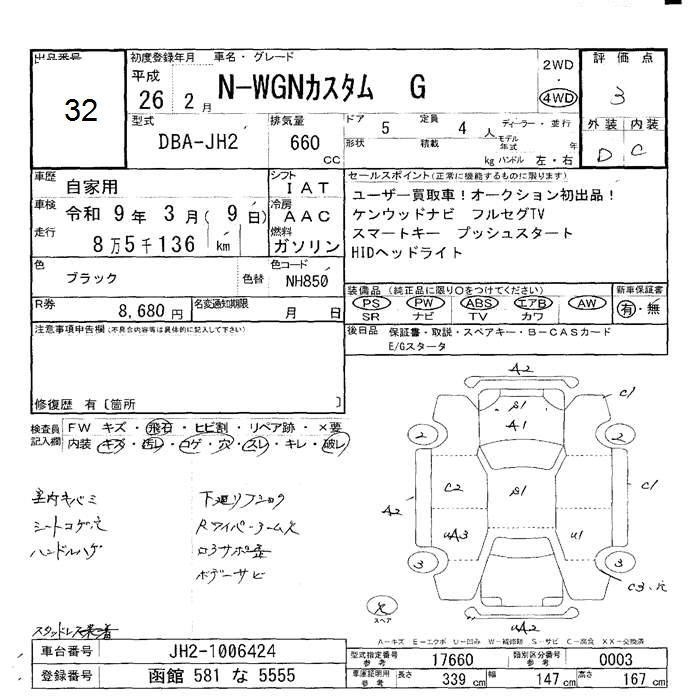 出品番号 32
初度登録年月 車名・グレード
平成 26 2月 N-WGNカスタム G
2WD・4WD
評価点 3
外装 内装
D C
型式 DBA-JH2
排気量 660 CC
ドア 5 定員 4 人 ディーラー・並行
形状 積載 kg モデル年式 年 ハンドル 左・右
車歴 自家用
車検 令和 9年 3月( 9日)
走行 8万5千136 km
シフト IAT
冷房 AAC
燃料 ガソリン
セールスポイント(正常に機能するものに限ります)
ユーザー買取車!オークション初出品!
ケンウッドナビ フルセグTV
スマートキー プッシュスタート
HIDヘッドライト
色 ブラック 色替
色コード NH850
装備品 (純正品に限り○をつけてください) 新車保証書
PS PW ABS エアB AW 有・無
SR ナビ TV カワ
R券 8,680円 名変通知期限 月 日
注意事項申告欄(不具合内容等は具体的に記入して下さい)
後日品 保証書・取説・スペアキー・B-CASカード
E/Gスタータ
修復歴 有〔箇所 〕
検査員記入欄 FW キズ・飛石・ヒビ割・リペア跡・×要
内装・キズ・汚レ・コゲ・穴・スレ・キレ・破レ
室内キバミ 下廻リフショク
シートコゲ穴 Rワイパーアーム欠
ハンドルハゲ
ボデーサビ
A2
C1
S1
A1
2 2
C2 S1 C1
A2
uA3 u1
3 3
C3
スペア
uA2
スタッドレス装着
A-キズ E-エクボ U-凹み W-補修跡 S-サビ C-腐食 XX-交換済
車台番号 JH2-1006424
型式指定番号 参考 17660 類別区分番号 参考 0003
登録番号 函館 581 な 5555
車庫証明用 参考 長さ 339 cm 幅 147 cm 高さ 167 cm